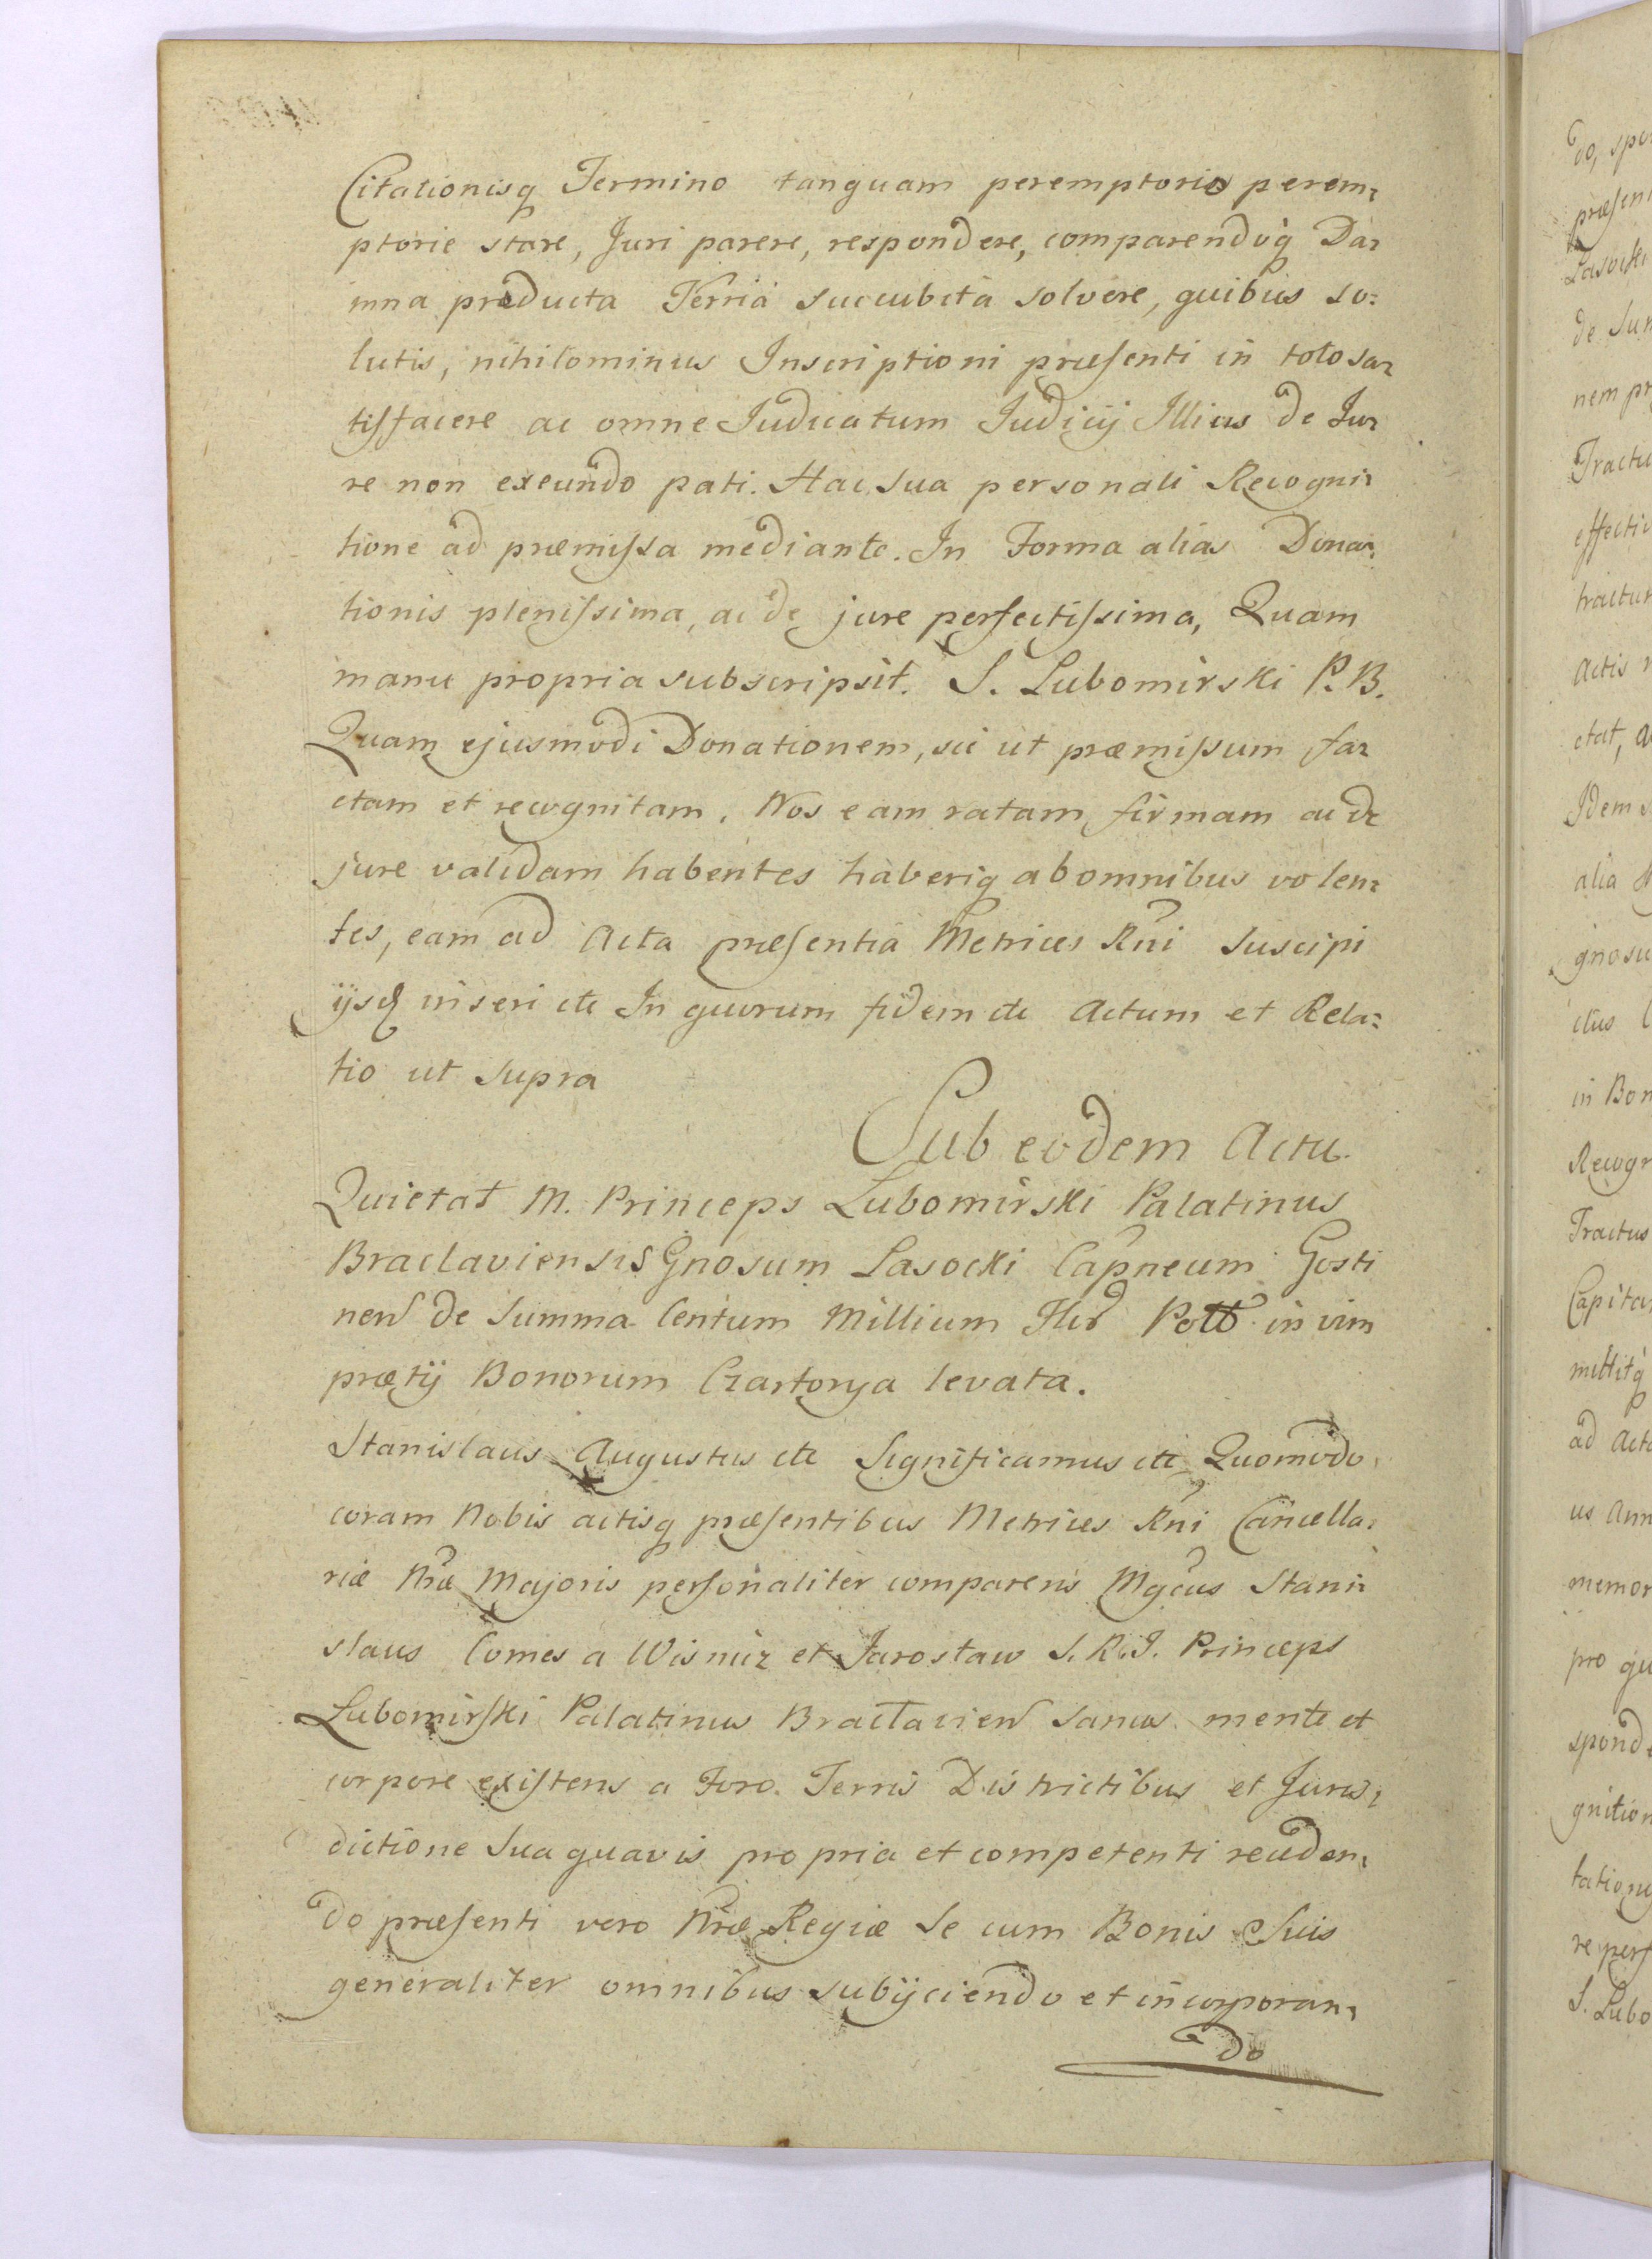 Citationisq Termino tanquam peremptorio perem-
ptorie stare, Juri parere, respondere, comparendoq Da-
mna producta Terria succubita solvere, quibus so-
lutis, nihilominus Inscriptioni præsenti in toto sa-
tisfacere ac omne Judicatum Judicij Illius de Ju-
re non exeundo pati. Hac sua personali Recogni-
tione ad præmissa mediante. In Forma alias Dona-
tionis plenissima, ac de jure perfectissima, Quam
manu propria subscripsit. S. Lubomirski P. B.
Quam ejusmodi Donationem, sic ut præmissum fa-
ctam et recognitam. Nos eam ratam firmam ac de
jure validam habentes haberiq ab omnibus volen-
tes, eam ad Acta præsentia Metrices Rni suscipi
ijsq inseri etc In quorum fidem etc Actum et Rela-
tio ut supra
Sub eodem Actu.
Quietat M. Princeps Lubomirski Palatinus
Braclaviensis Gnosum Lasocki Capneum Gosti
nen de Summa Centum Millium Flor Poll in vim
prætij Bonorum Czartorya levata.
Stanislaus Augustus etc Significamus etc Quomodo
coram Nobis actisq præsentibus Metrices Rni Cancella-
riæ Nræ Majoris personaliter comparens Mgcus Stani-
slaus Comes a Wisnicz et Jaroslaw S. R. I. Princeps
Lubomirski Palatinus Braclavien sanus mente et
corpore existens a Foro. Terris Districtibus et Juris-
dictione sua quavis propria et competenti receden-
do præsenti vero Nræ Regiæ se cum Bonis Suis
generaliter omnibus subijciendo et incorporan-
do